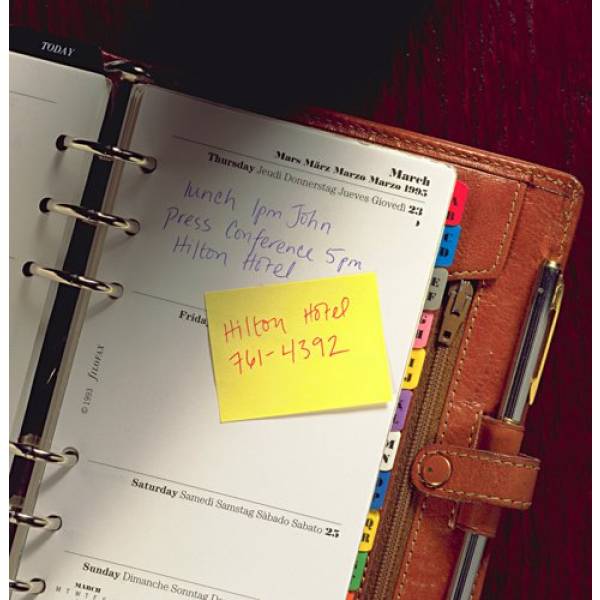 TODAY
March
Mars März Marzo Marzo 1995
Thursday Jeudi Donnerstag Jueves Giovedì 23
lunch 1pm John
Press Conference 5pm
Hilton Hotel
Hilton Hotel
761-4392
Friday
© 1993 FILOFAX
Saturday Samedi Samstag Sàbado Sabato 25
Sunday Dimanche Sonntag
MARCH
M T W T F S
A
B
C
D
E
F
G
H
I
J
K
L
M
N
O
P
Q
R